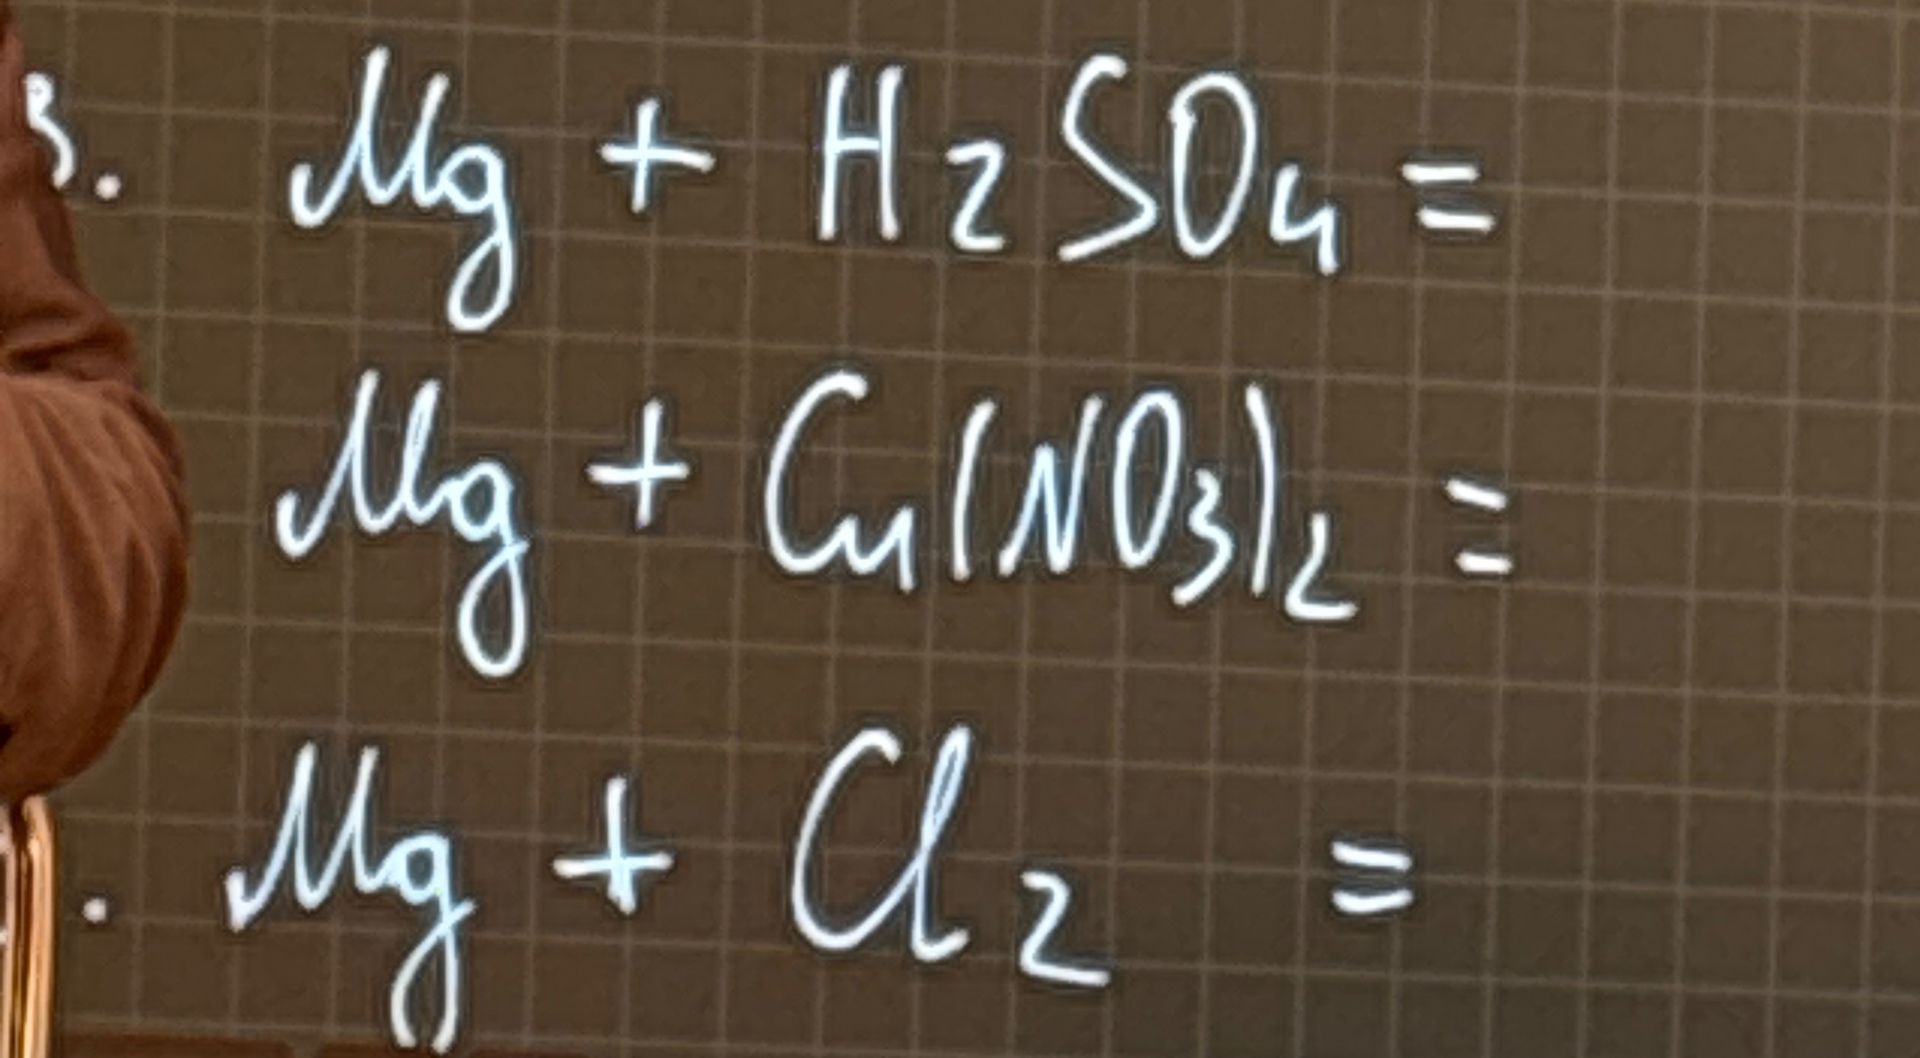 3. Mg + H2SO4 =
Mg + Cu(NO3)2 =
. Mg + Cl2 =